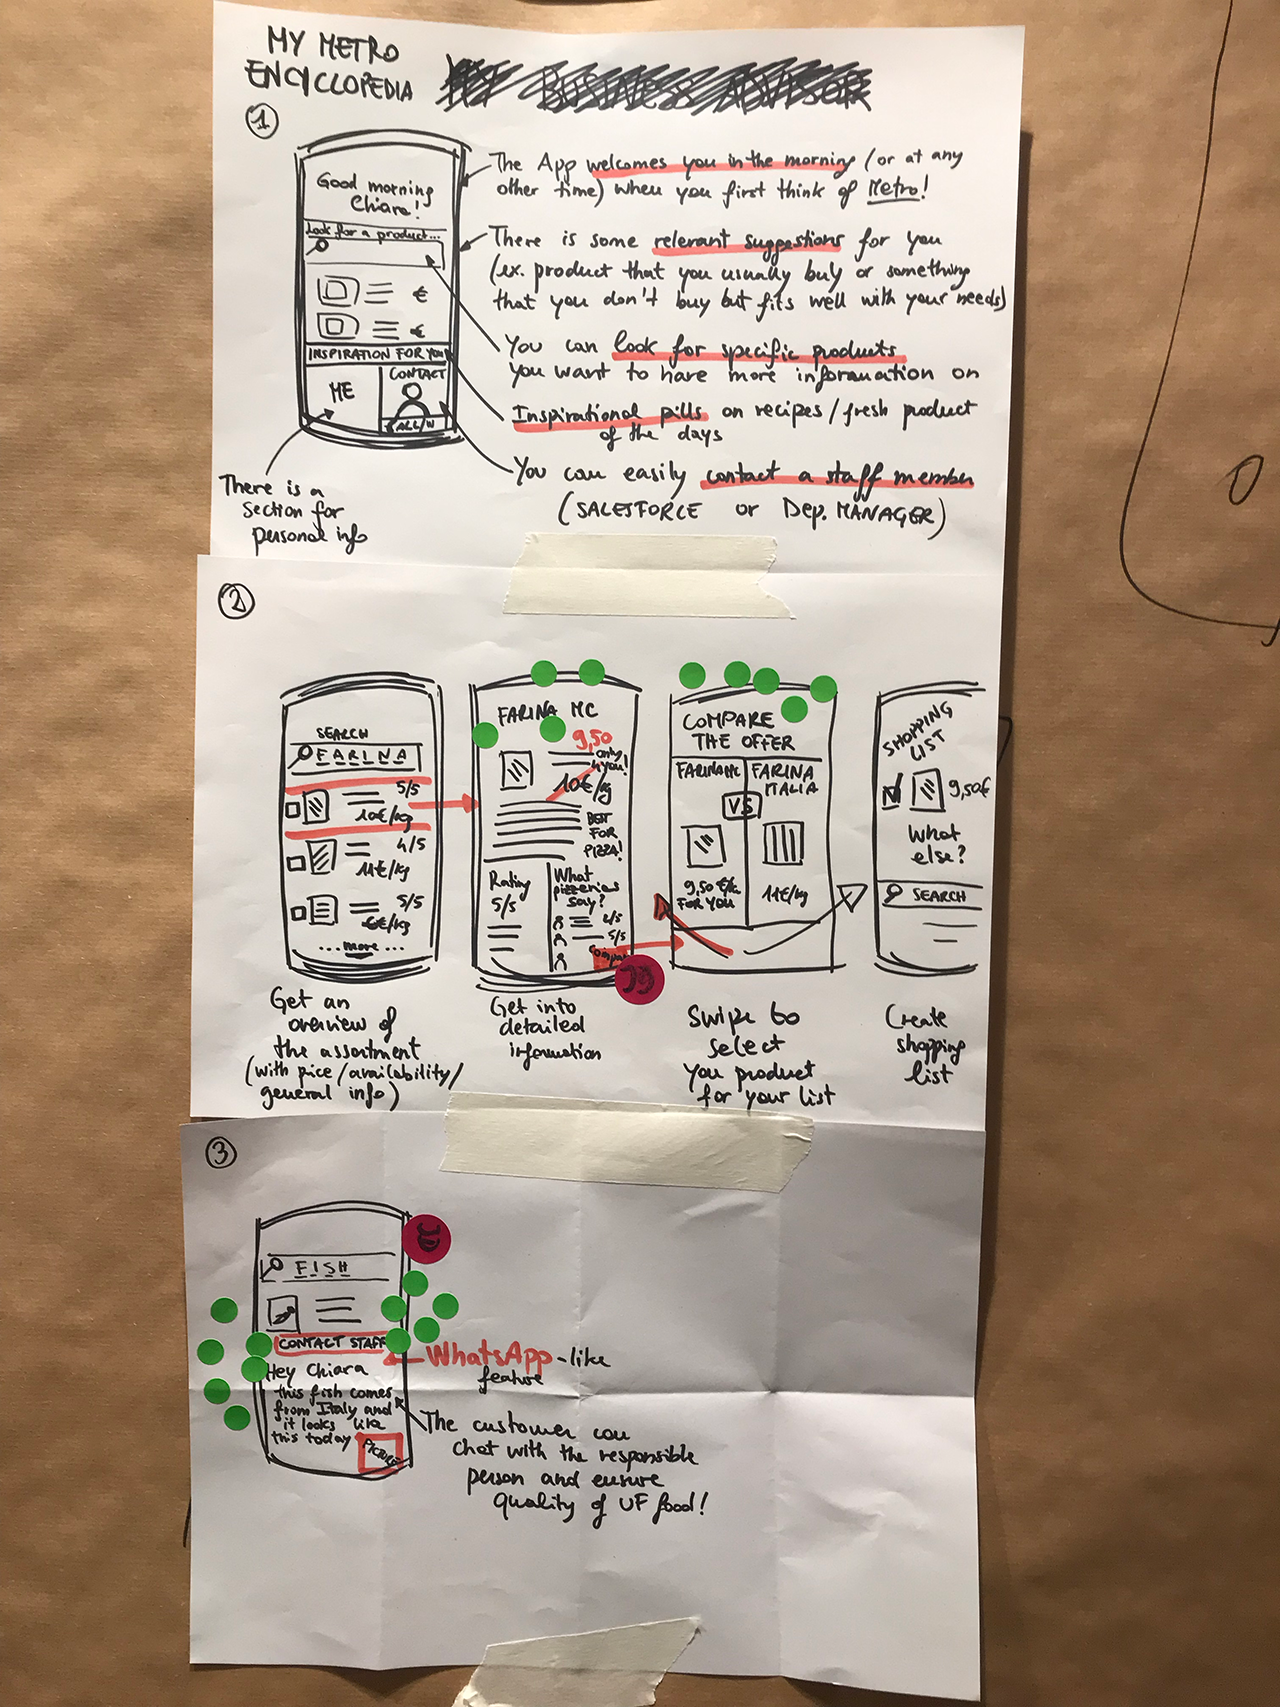 MY METRO
ENCYCLOPEDIA MY BUSINESS ADVISOR
1
Good morning
Chiara!
Look for a product...
€
€
INSPIRATION FOR YOU
ME
CONTACT
The App welcomes you in the morning (or at any
other time) when you first think of Metro!
There is some relevant suggestions for you
(ex. product that you usually buy or something
that you don't buy but fits well with your needs)
You can look for specific products
you want to have more information on
Inspirational pills on recipes/fresh product
of the days
You can easily contact a staff member
(SALESFORCE or Dep. MANAGER)
There is a
section for
personal info
2
SEARCH
FARINA
5/5
10€/kg
4/5
11€/kg
5/5
6€/kg
... more ...
Get an
overview of
the assortment
(with price/availability/
general info)
FARINA MC
9,50
only
4you!
10€/kg
BEST
FOR
PIZZA!
Rating
5/5
What
pizzerias
say?
4/5
5/5
Compare
Get into
detailed
information
COMPARE
THE OFFER
FARINA MC
FARINA
ITALIA
VS
9,50 €/k
FOR YOU
11€/kg
Swipe to
select
you product
for your list
SHOPPING
LIST
9,50€
What
else?
SEARCH
Create
shopping
list
3
FISH
CONTACT STAFF
Hey Chiara
this fish comes
from Italy and
it looks like
this today
PICTURE
WhatsApp-like
feature
The customer can
chat with the responsible
person and ensure
quality of UF food!
O